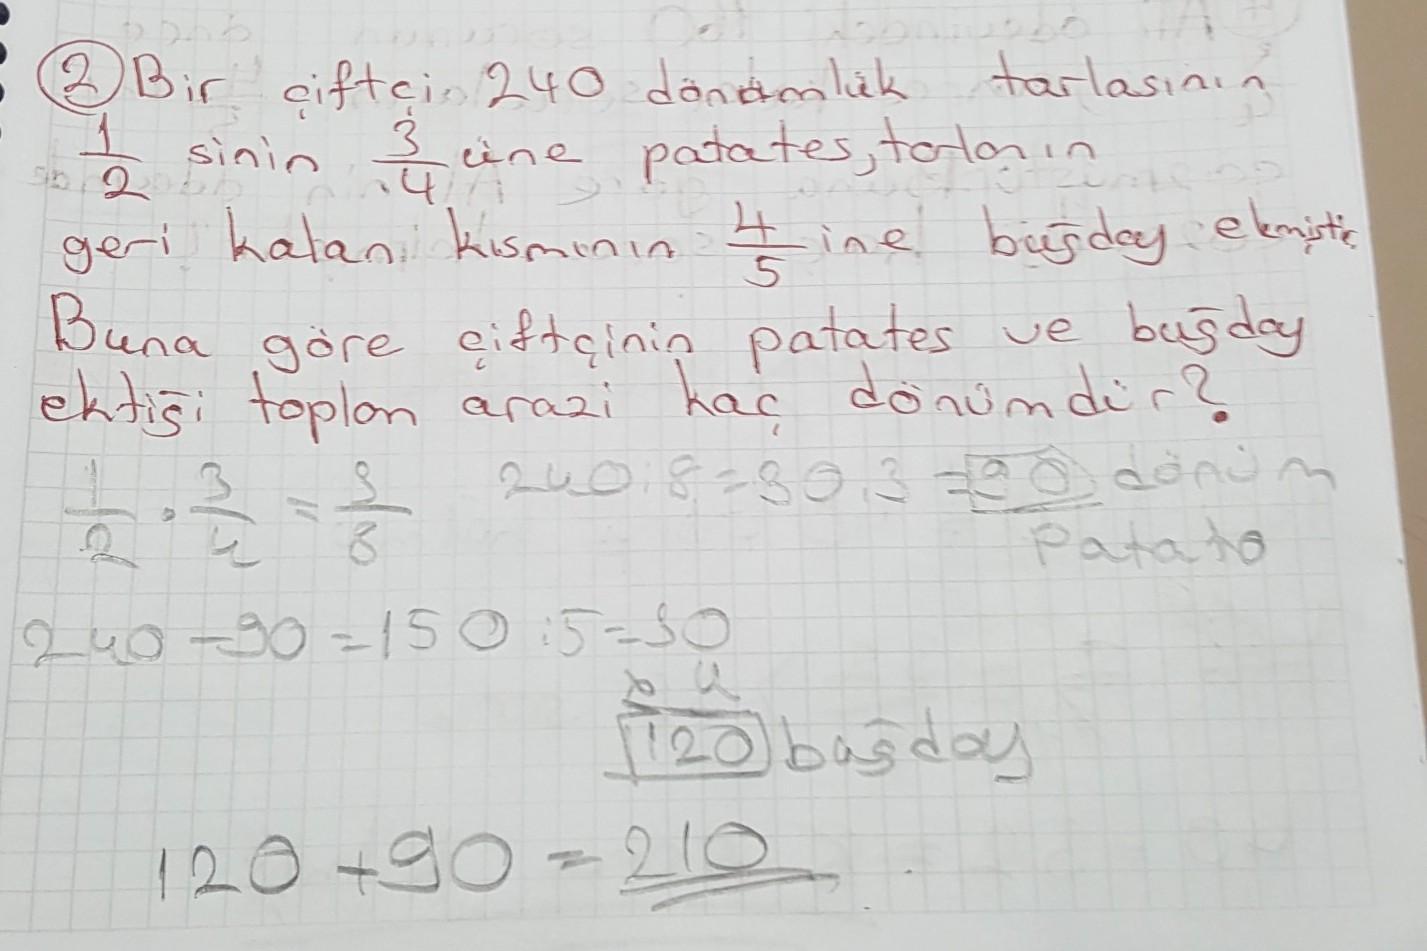 ② Bir çiftçi 240 dönümlük tarlasının
1/2 sinin 3/4 üne patates, tarlanın
geri kalan kısmının 4/5 ine buğday ekmiştir.
Buna göre çiftçinin patates ve buğday
ektiği toplam arazi kaç dönümdür?
1/2 . 3/4 = 3/8 240:8=30.3=90 dönüm
Patato
240-90=150:5=30
x 4
120 buğday
120+90=210